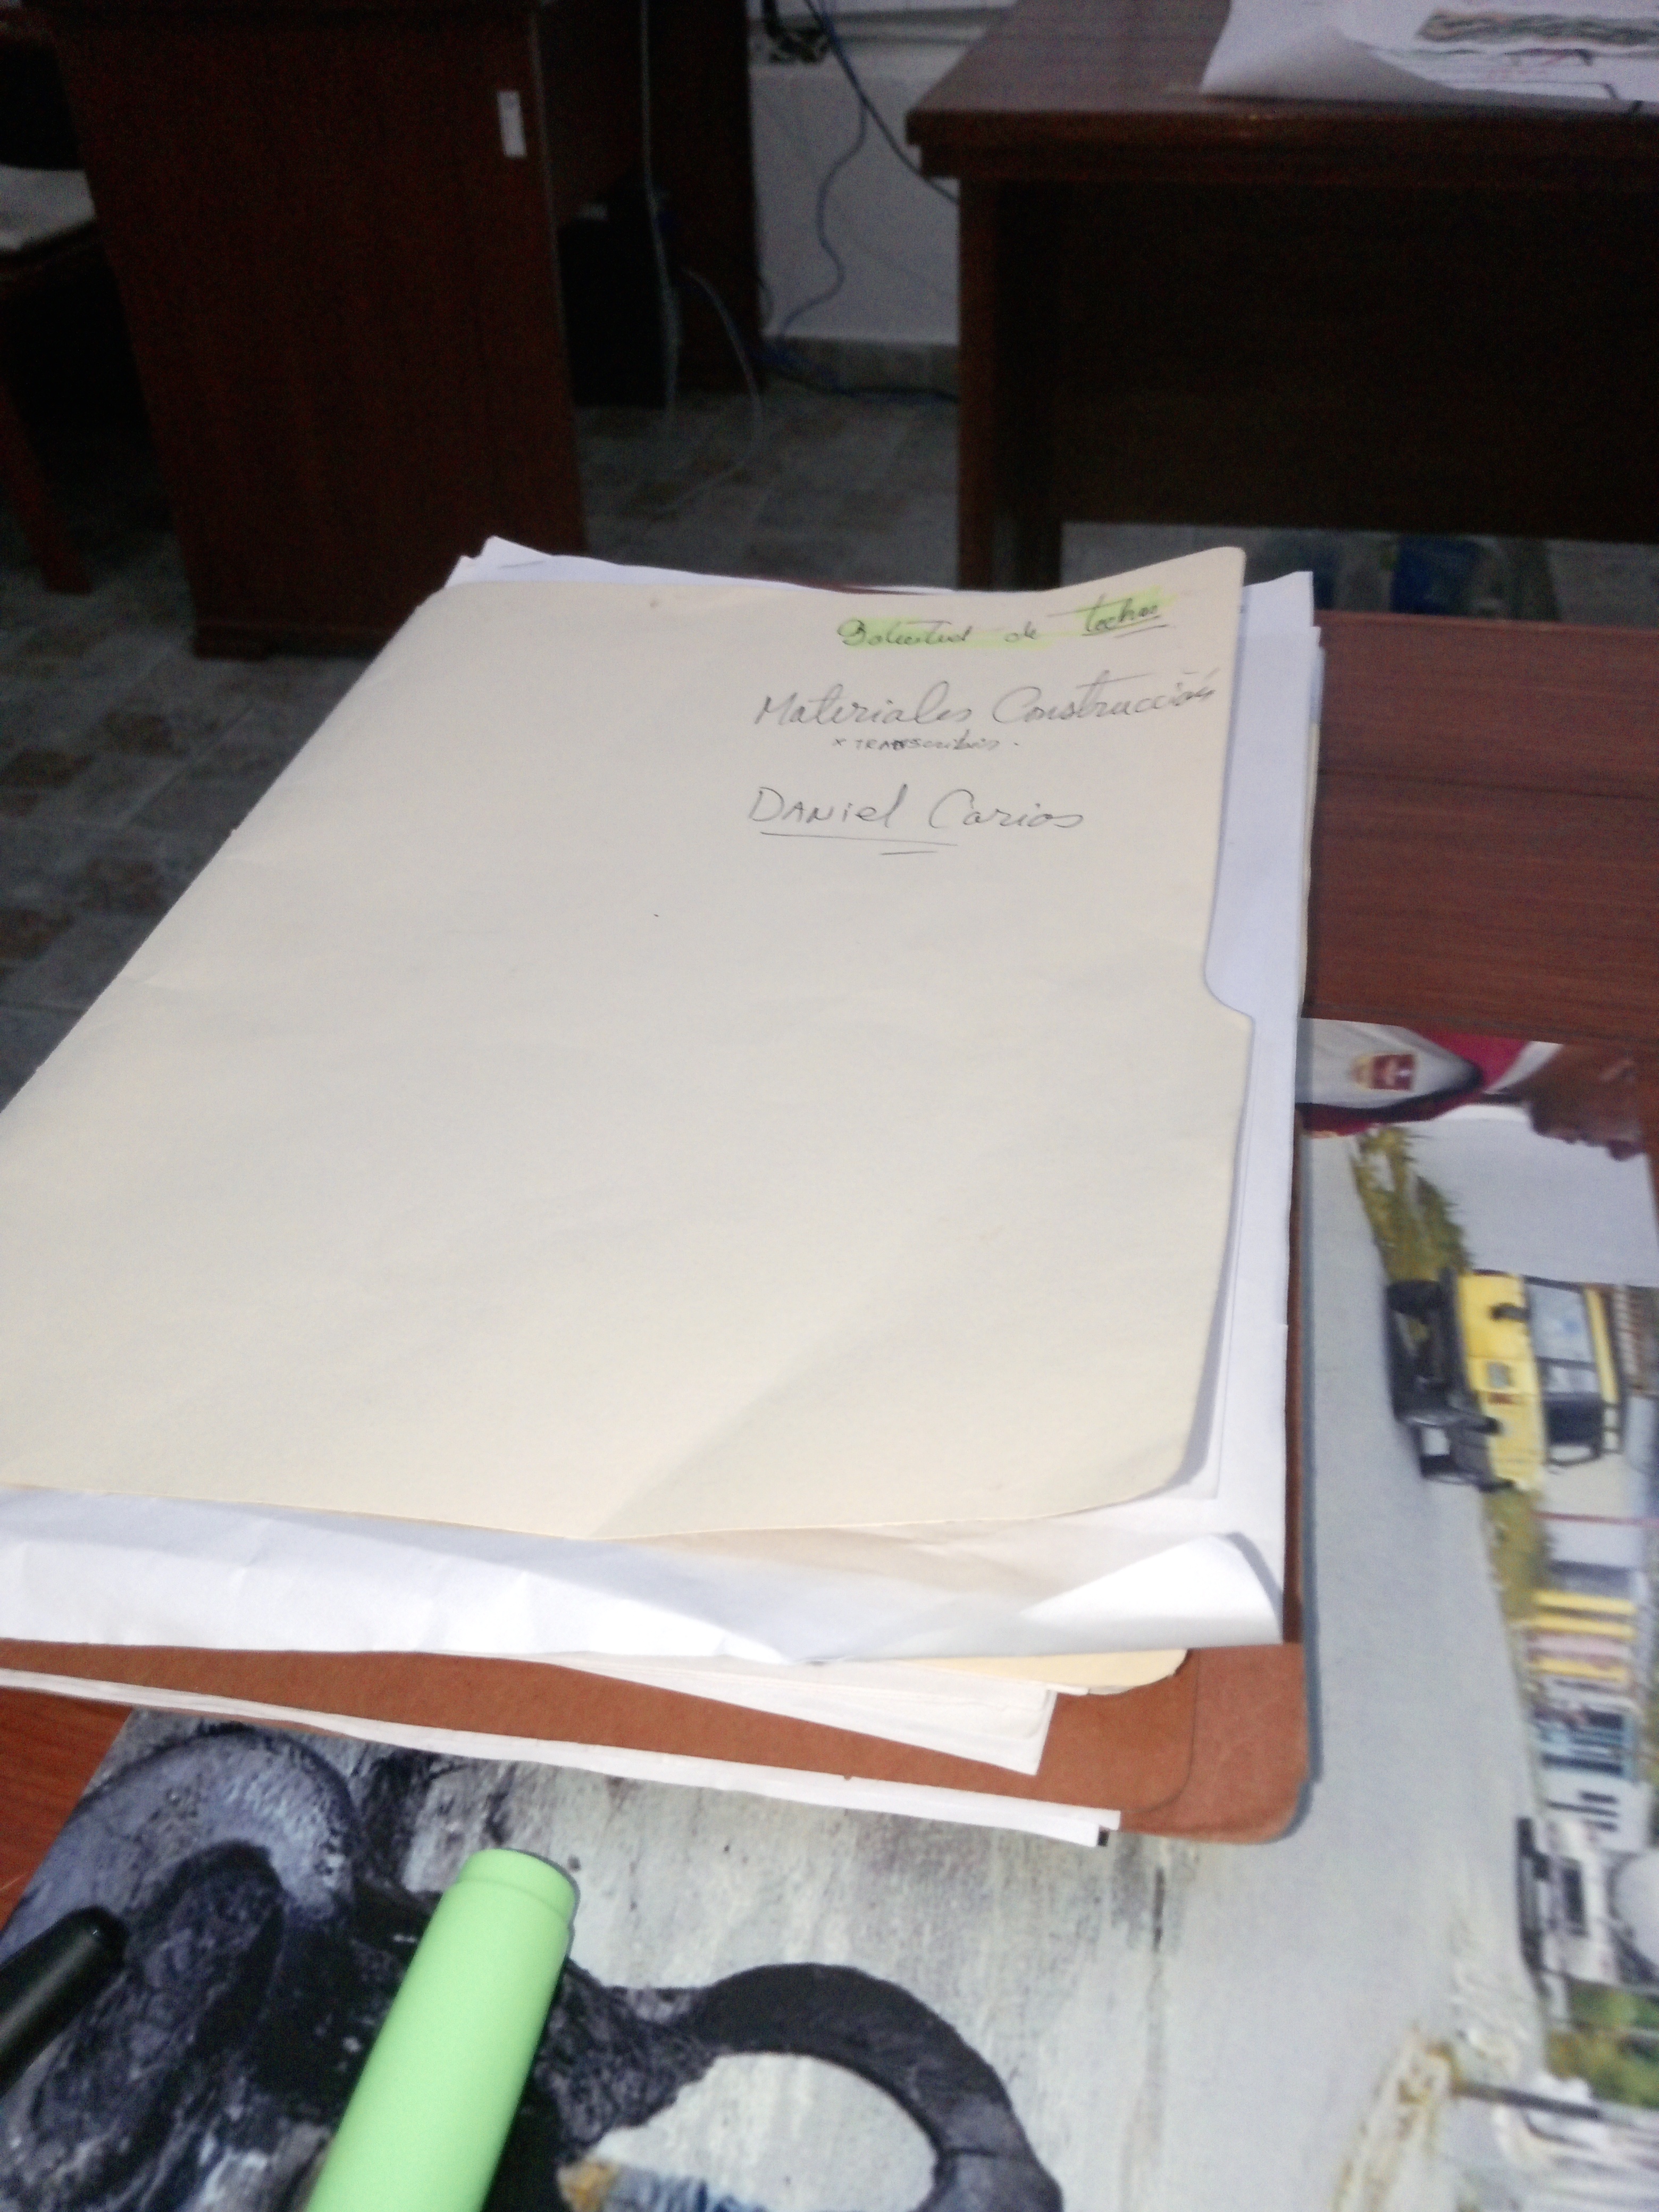 Solicitud de techos
Materiales Construcción
x TRANScribir.
DANiel Carios